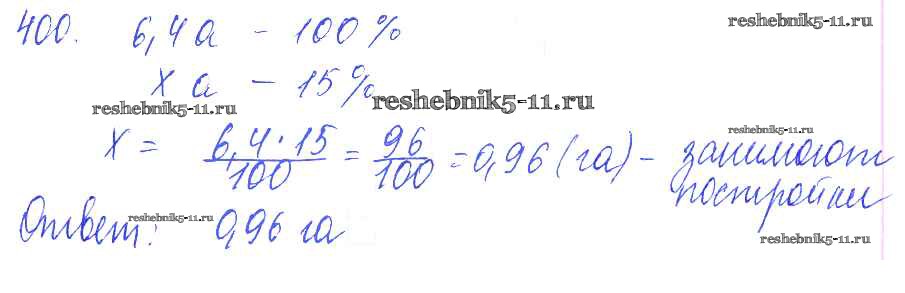 400. 6,4 а – 100% reshebnik5-11.ru
х а – 15%
reshebnik5-11.ru reshebnik5-11.ru
х = 6,4·15/100 = 96/100 = 0,96 (га) – занимают reshebnik5-11.ru
постройки
Ответ: reshebnik5-11.ru 0,96 га
reshebnik5-11.ru